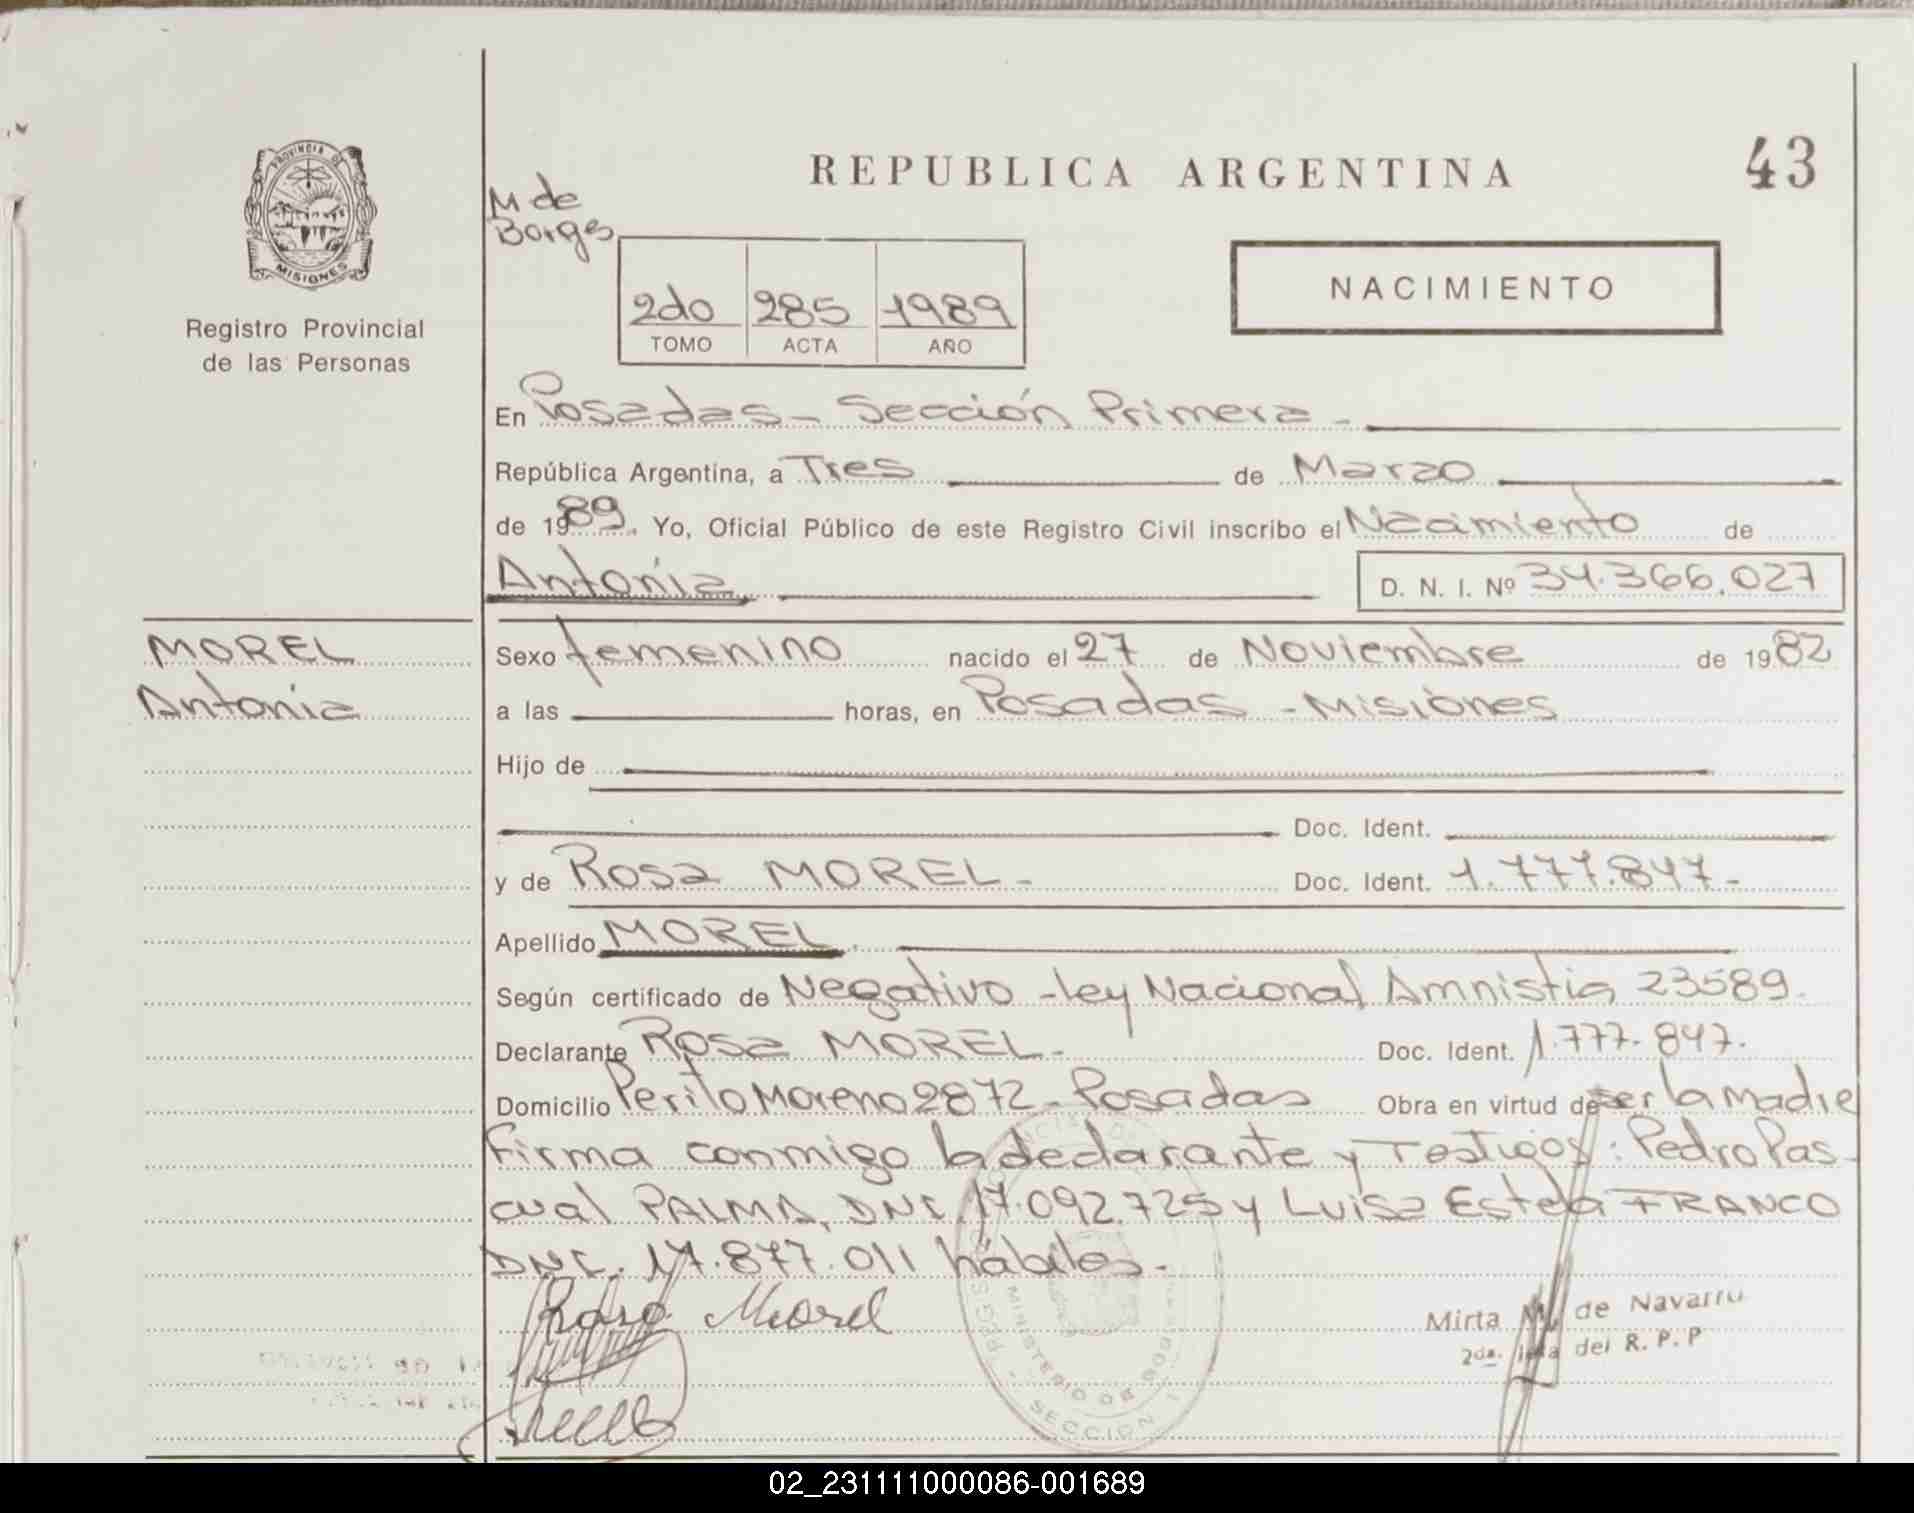 REPUBLICA ARGENTINA
43
PROVINCIA DE
MISIONES
Registro Provincial
de las Personas
M de
Borges
2do 285 1989
TOMO ACTA AÑO
NACIMIENTO
En Posadas - Sección Primera -
República Argentina, a Tres de Marzo
de 1989. Yo, Oficial Público de este Registro Civil inscribo el Nacimiento de
Antonia
D. N. I. Nº 34.366.027
MOREL
Antonia
Sexo femenino nacido el 27 de Noviembre de 1982
a las horas, en Posadas - Misiones
Hijo de
Doc. Ident.
y de Rosa MOREL - Doc. Ident. 1.777.847-
Apellido MOREL.
Según certificado de Negativo - Ley Nacional Amnistia 23589.
Declarante Rosa MOREL - Doc. Ident. 1.777.847.
Domicilio Perito Moreno 2872 - Posadas Obra en virtud de ser la madre
firma conmigo la declarante y Testigos: Pedro Pas-
cual PALMA, DNI. 17.092.725 y Luisa Estela FRANCO
DNI. 17.877.011 hábiles -
Rosa Morel
Mirta M. de Navarro
2da. del R. P. P
MINISTERIO DE GOB
SECCION 1
02_231111000086-001689